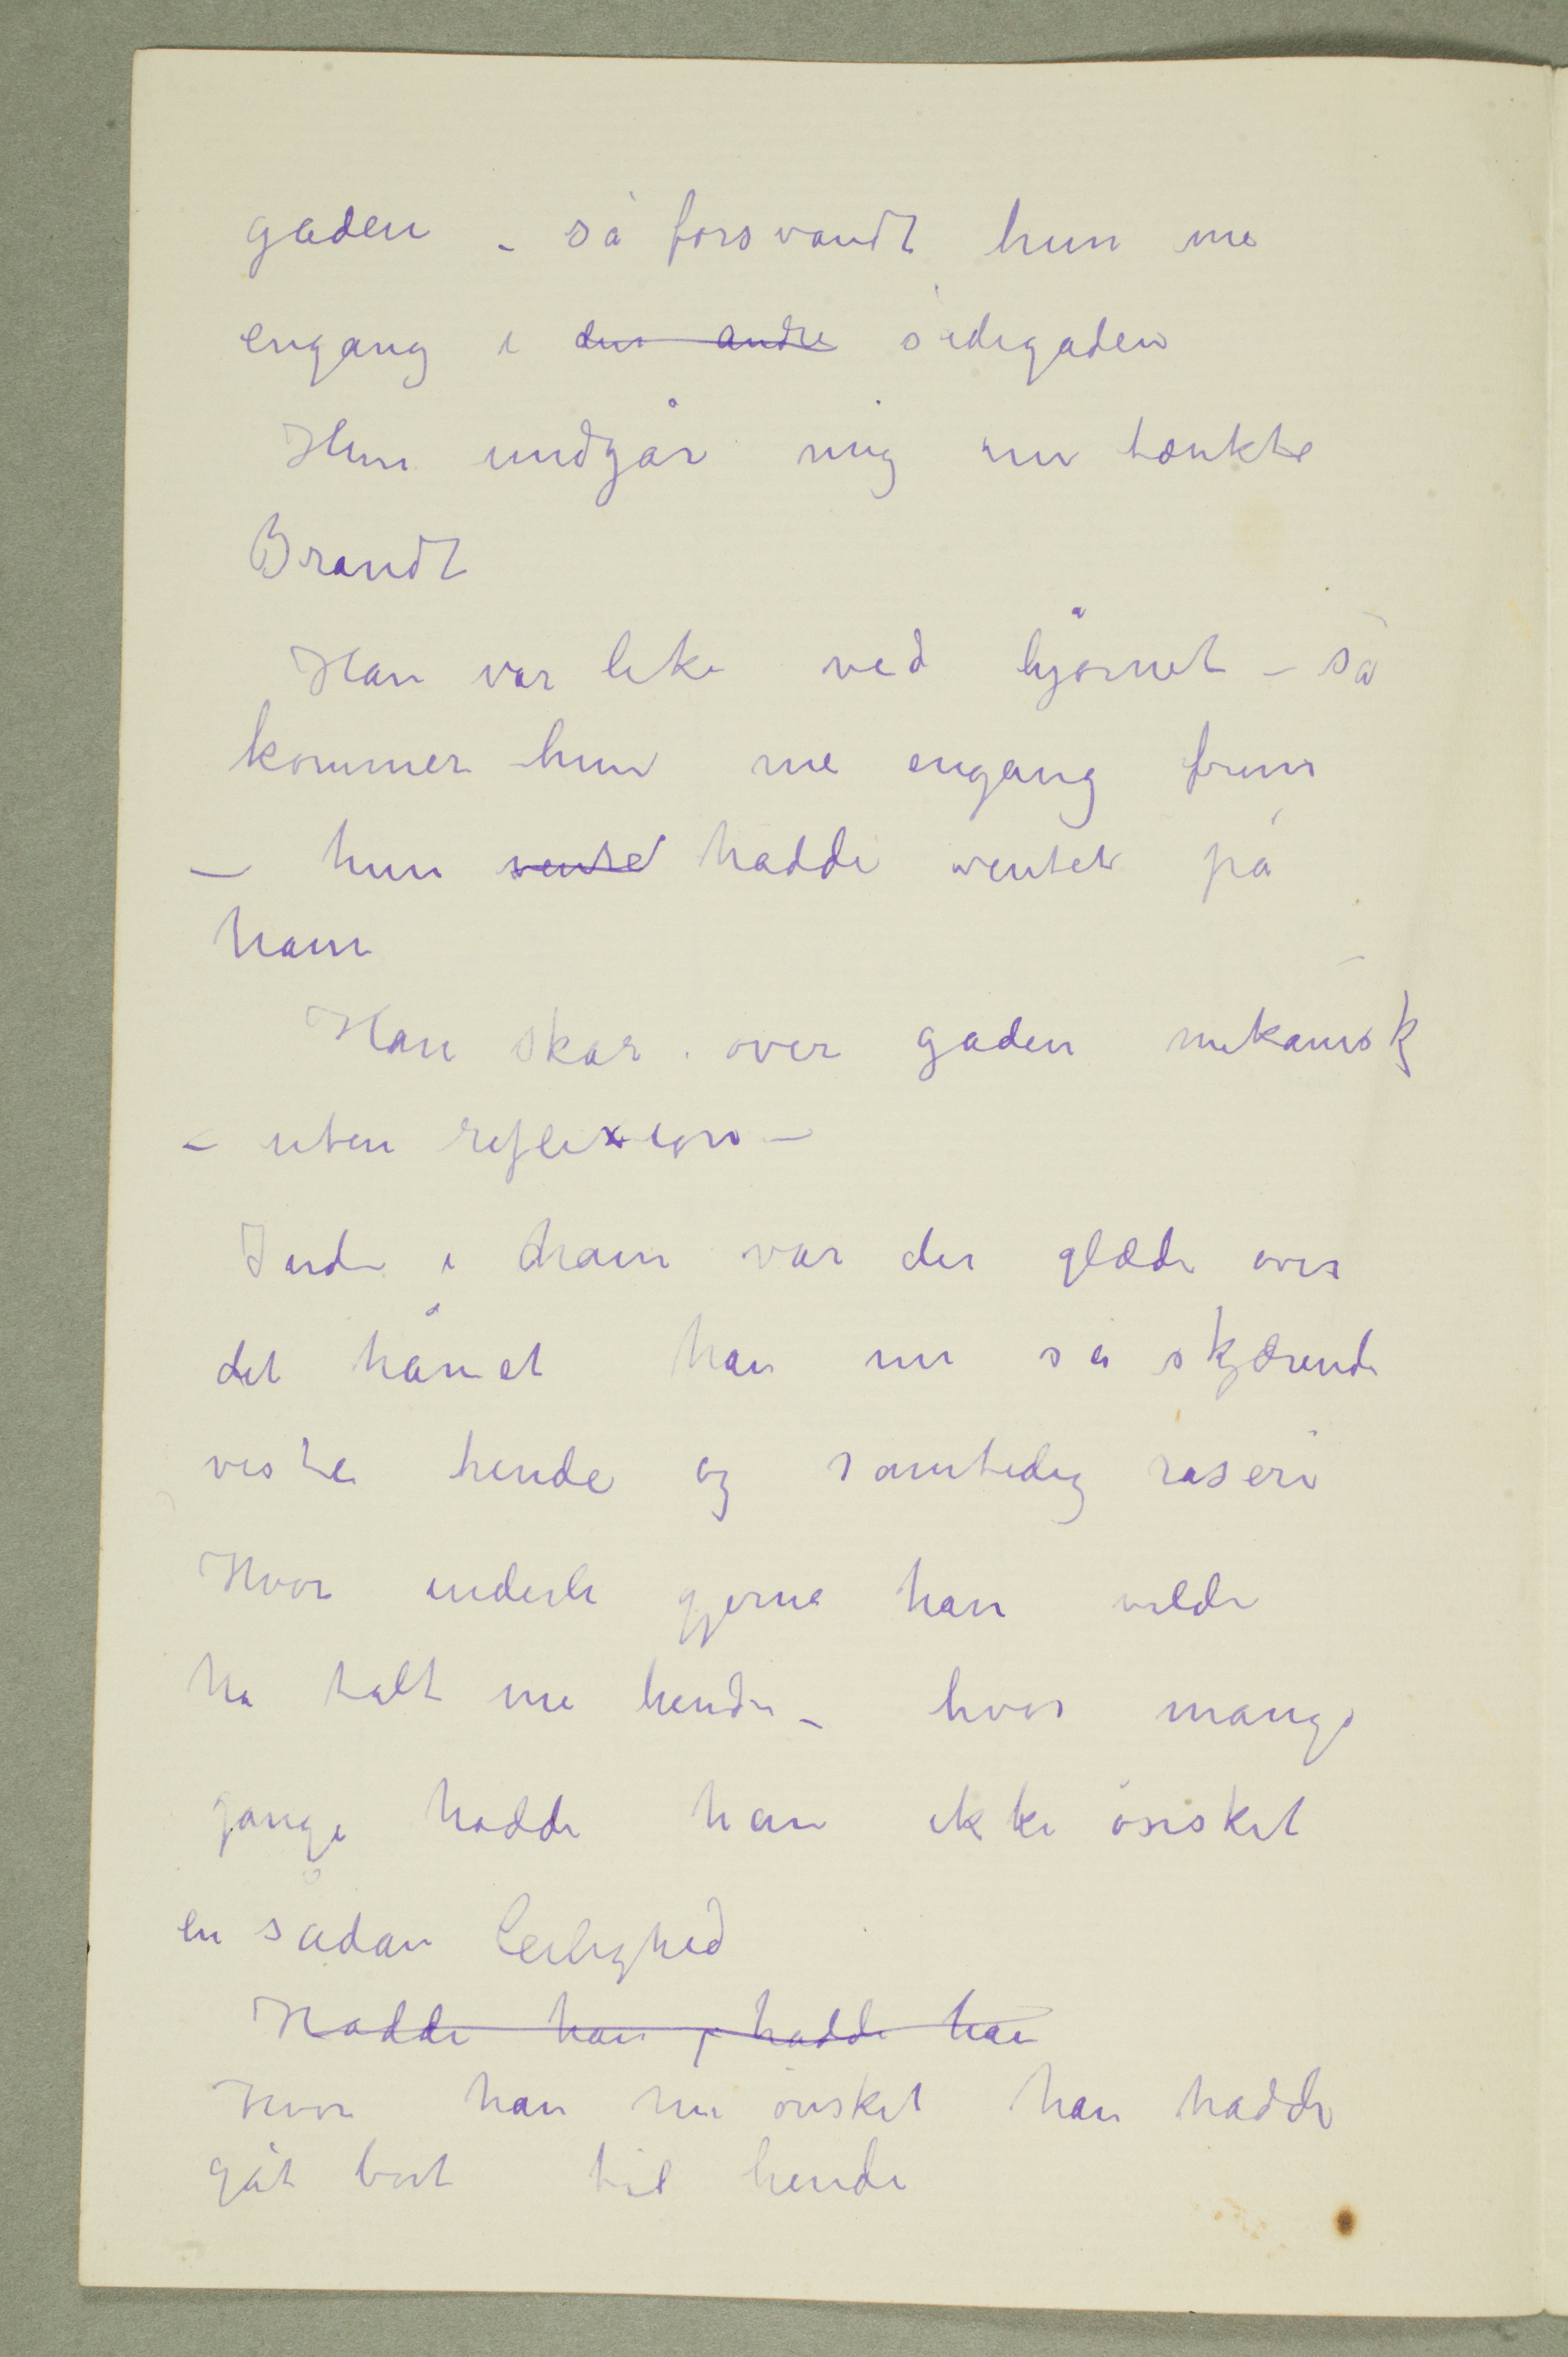 gaden – så forsvandt hun me
engang i den andre sidegaden
Hun undgår mig nu tænkte
Brandt
Han var like ved hjørnet – så
kommer hun me engang frem
– hun vente hadde ventet på
ham
Han skar over gaden mekanisk
– uten reflexion –
Inde i ham var der glæde over
det hånet han nu så skjærende
viste hende og samtidig raseri
Hvor inderli gjerne han vilde
ha talt me hende – hvor mange
gange hadde han ikke ønsket
en sådan Leilighed
Hadde han hadde han
Hvor han nu ønsket han hadde
gåt bort til hende